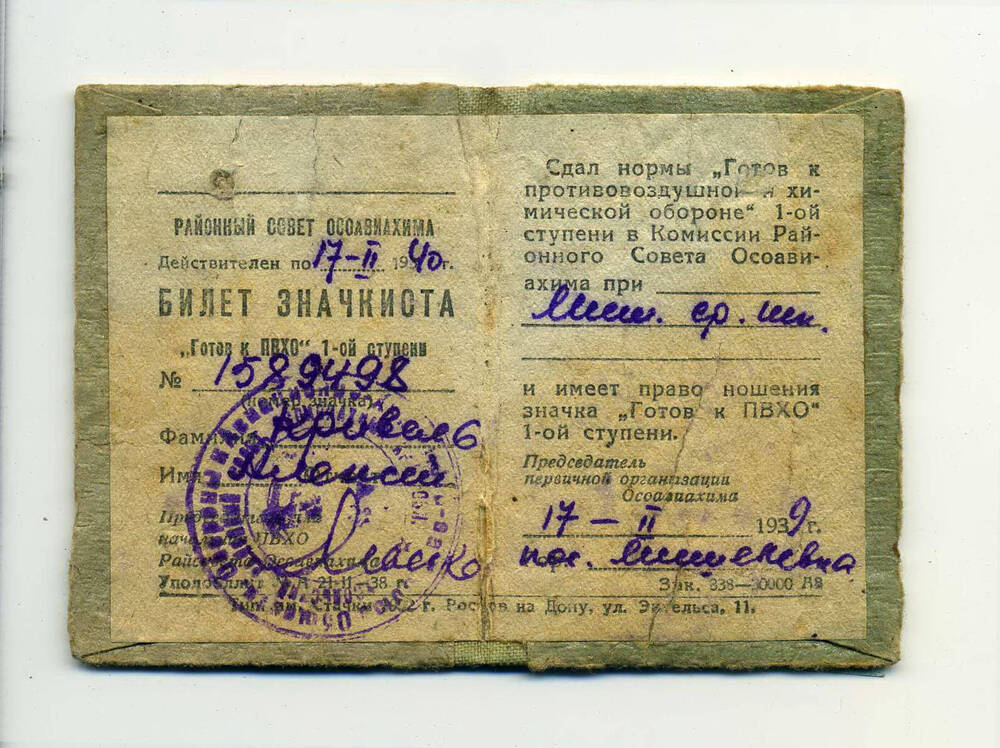 РАЙОННЫЙ СОВЕТ ОСОАВИАХИМА
Действителен по 17-II 1940 г.
БИЛЕТ ЗНАЧКИСТА
„Готов к ПВХО" 1-ой ступени
№ 1589498
(номер значка)
Фамилия
Имя Алексей
начальник ПВХО
Райсовета Осоавиахима
Уполобллит № А 21-II-38 г.
Тип. им. Стачки 1902 г. Ростов на Дону, ул. Энгельса, 11.
Сдал нормы „Готов к
противовоздушной и хи-
мической обороне" 1-ой
ступени в Комиссии Рай-
онного Совета Осоави-
ахима при
ср. шк.
и имеет право ношения
значка „Готов к ПВХО"
1-ой ступени.
Председатель
первичной организации
Осоавиахима
17-II 1939 г.
пос.
Зак. 338—30000